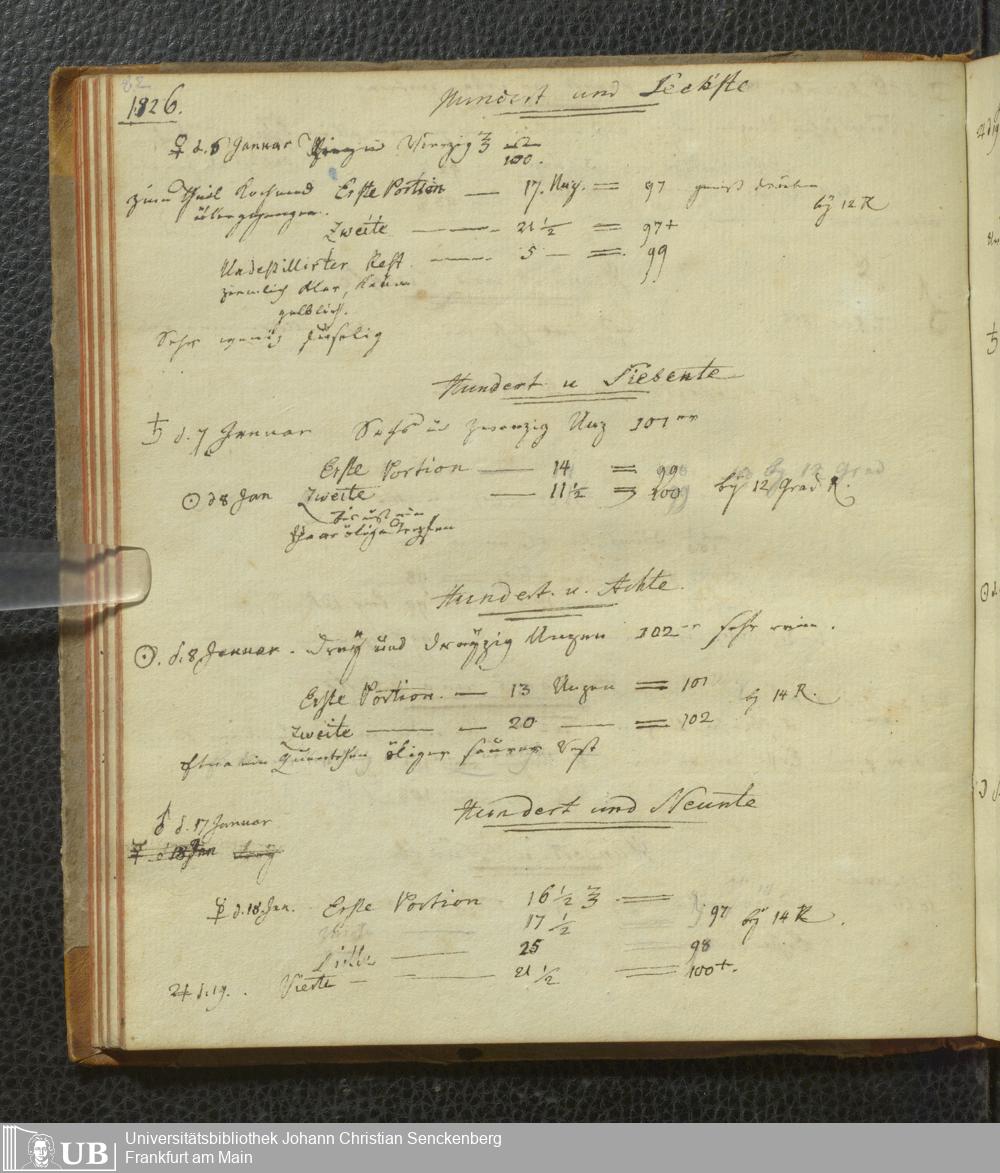 82
1826.
Hundert und Sechste
♀ d. 6 Januar Vierzig ℥
100.
zum Theil kochend Erste Portion — 17. Unz. = 97
übergegangen. by 12 R
Zweite — 21 1/2 = 97+
Undestillirter Rest — 5 — = 99
ziemlich klar, kaum
gelblich.
Sehr wenig fuselig
Hundert u Siebente
♄ d. 7 Januar Sechs u zwanzig Unz 101
Erste Portion — 14 = 99
☉ d 8 Jan Zweite — 11 1/2 = 100 by 12 Grad R.
bis auf ein
Paar ölige Tropfen
Hundert. u. Achte.
☉. d. 8 Januar. Drey und dreyzig Unzen 102 sehr rein.
Erste Portion. — 13 Unzen = 101 by 14 R.
Zweite — 20 — = 102
Etwa ein Quentchen öliger saurer Rest
Hundert und Neunte
♂ d. 17 Januar
☿ d 18 Jan drey
☿ d. 18 Jan. Erste Portion 16 1/2 ℥ =
17 1/2 97 by 14 R.
Dritte — 25 98
♃ d. 19. Vierte — 21 1/2 = 100+.
UB
Universitätsbibliothek Johann Christian Senckenberg
Frankfurt am Main